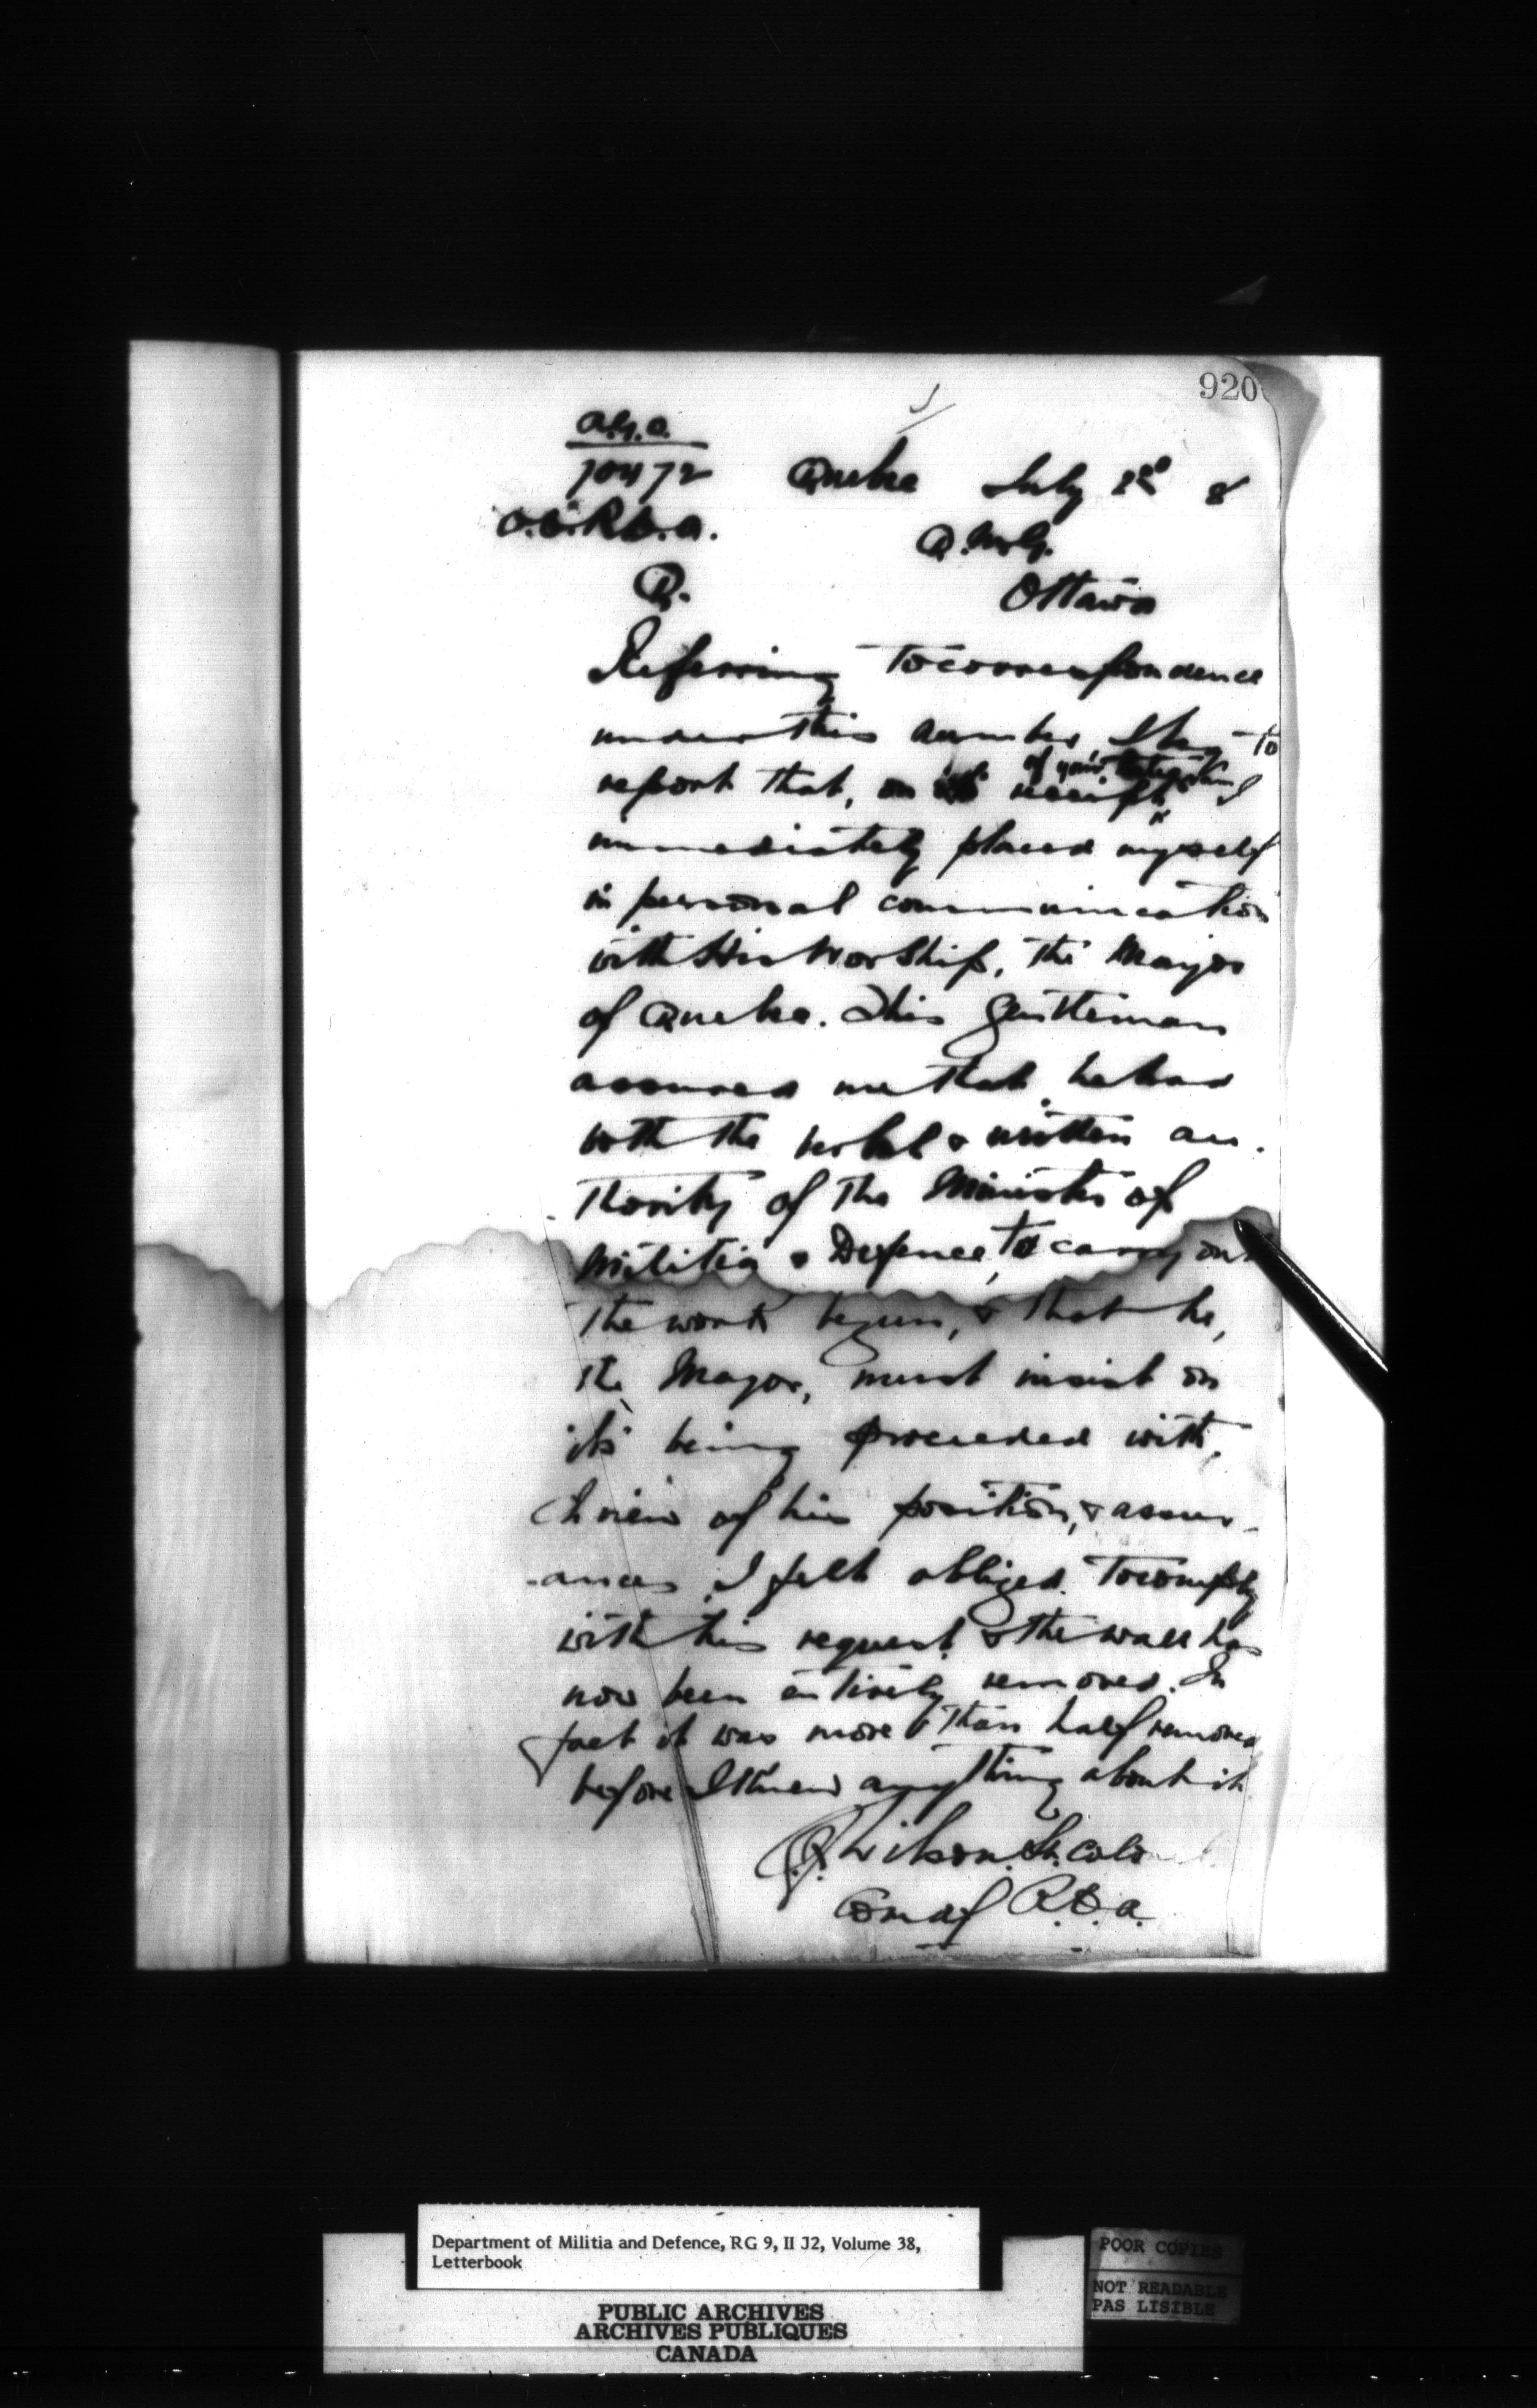 920
10472
Quebec July 2nd 8
Q.M.G.
Ottawa
Referring to correspondence
under this number I beg to
report that, on receipt of your I
immediately placed myself
in personal communication
with His Worship, the Mayor
of Quebec. This gentleman
assured me that he had
both the verbal & written au-
thority of the Minister of
Militia & Defence, to carry out
the work begun, & that he,
the Mayor, must insist on
its being proceeded with.
In view of his position, & assur-
-ances, I felt obliged to comply
with his request & the wall has
now been entirely removed. In
fact it was more than half removed
before I knew anything about it
Wilson. Lt. Col
Comdg R.C.A.
Department of Militia and Defence, RG 9, II J2, Volume 38,
Letterbook
PUBLIC ARCHIVES
ARCHIVES PUBLIQUES
CANADA
POOR COPIES
NOT READABLE
PAS LISIBLE